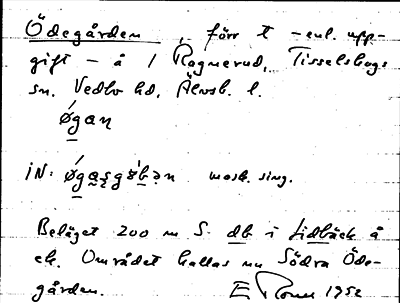 Ödegården, förr t - enl. upp-
gift - å 1 Ragnerud, Tisselskogs
sn. Vedbo hd, Älvsb. l.
øgan
iN: mask. sing.
Beläget 200 m S. db i Lidbäck å
ek. Området kallas nu Södra Öde-
gården. E 1952